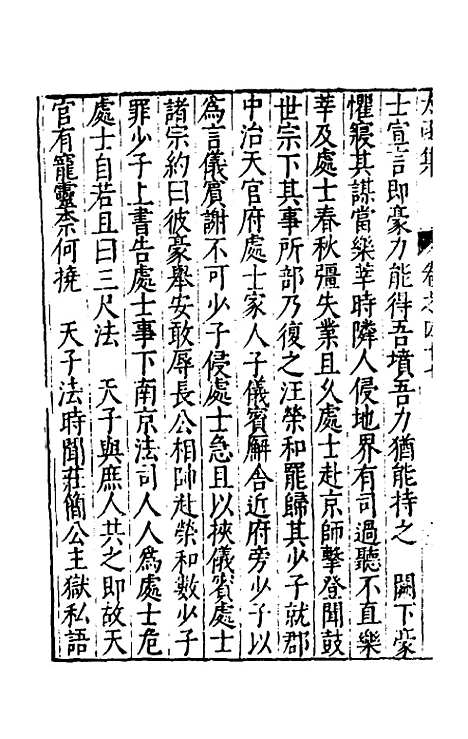 太函集 卷之四十七
士宣言即豪力能得吾墳吾力猶能持之 闕下豪
懼寢其謀當樂莘時隣人侵地界有司過聽不直樂
莘及處士春秋彊失業且久處士赴京師擊登聞鼓
世宗下其事所部乃復之汪榮和罷歸其少子就郡
中治天官府處士家人子儀賓廨舎近府旁少子以
為言儀賓謝不可少子侵處士急且以挾儀賓處士
諸宗約曰彼豪舉安敢辱長公相帥赴榮和數少子
罪少子上書告處士事下南京法司人人為處士危
處士自若且曰三尺法 天子與庶人共之即故天
官有寵靈柰何撓 天子法時聞莊簡公主獄私語